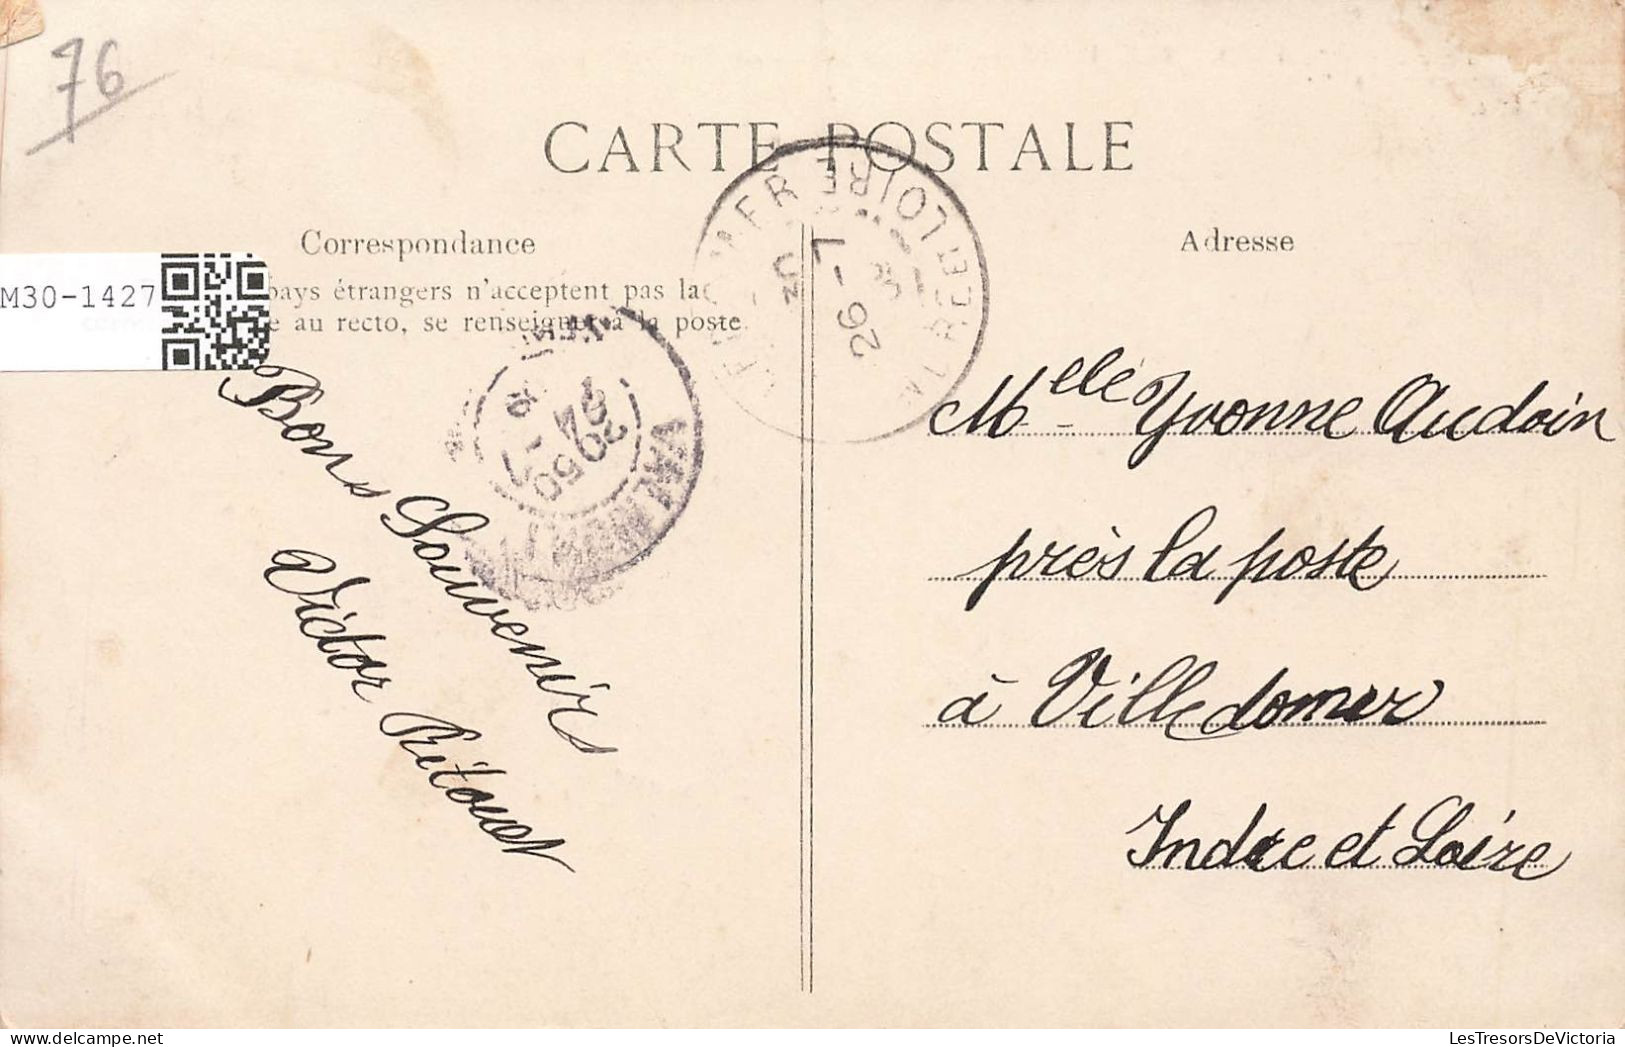 76
CARTE POSTALE
Correspondance
pays étrangers n'acceptent pas la
au recto, se renseigner à la poste.
M30-1427
Adresse
INDRE ET LOIRE
26 -7
Bons Souvenirs
Victor Ritouet
Melle Yvonne Audoin
près la poste
à Villedomer
Indre et Loire
LesTresorsDeVictoria